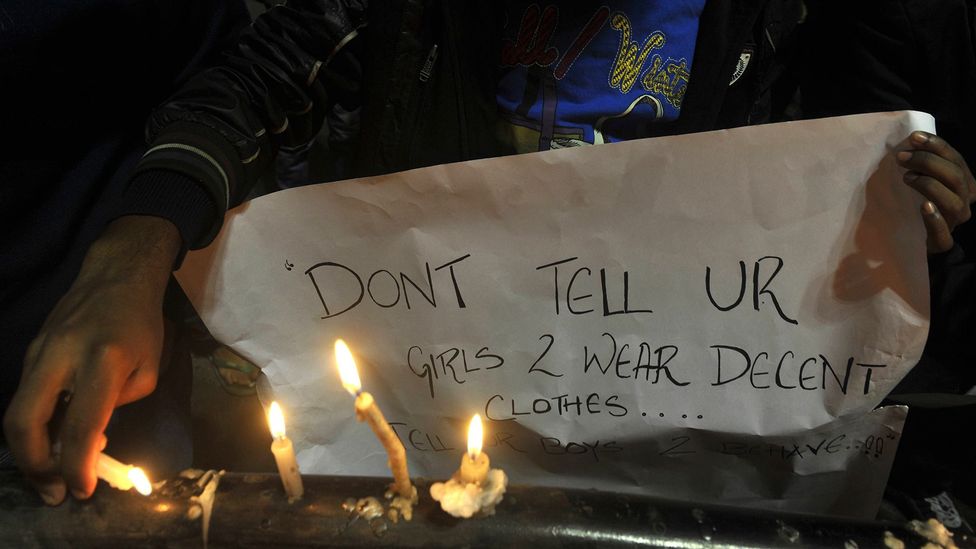 "DONT TELL UR
GIRLS 2 WEAR DECENT
CLOTHES....
TELL UR BOYS 2 BEHAVE..!!"